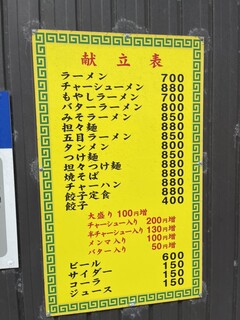 献立表
ラーメン 700
チャーシューメン 880
もやしラーメン 880
バターラーメン 800
みそラーメン 850
担々麺 880
五目ラーメン 880
タンメン 800
つけ麺 850
坦々つけ麺 880
焼そば 880
チャーハン 880
餃子定食 880
餃子 400
大盛り 100円増
チャーシュー入り 200円増
半チャーシュー入り 130円増
メンマ入り 100円増
バター入り 50円増
ビール 600
サイダー 150
コーラ 150
ジュース 150